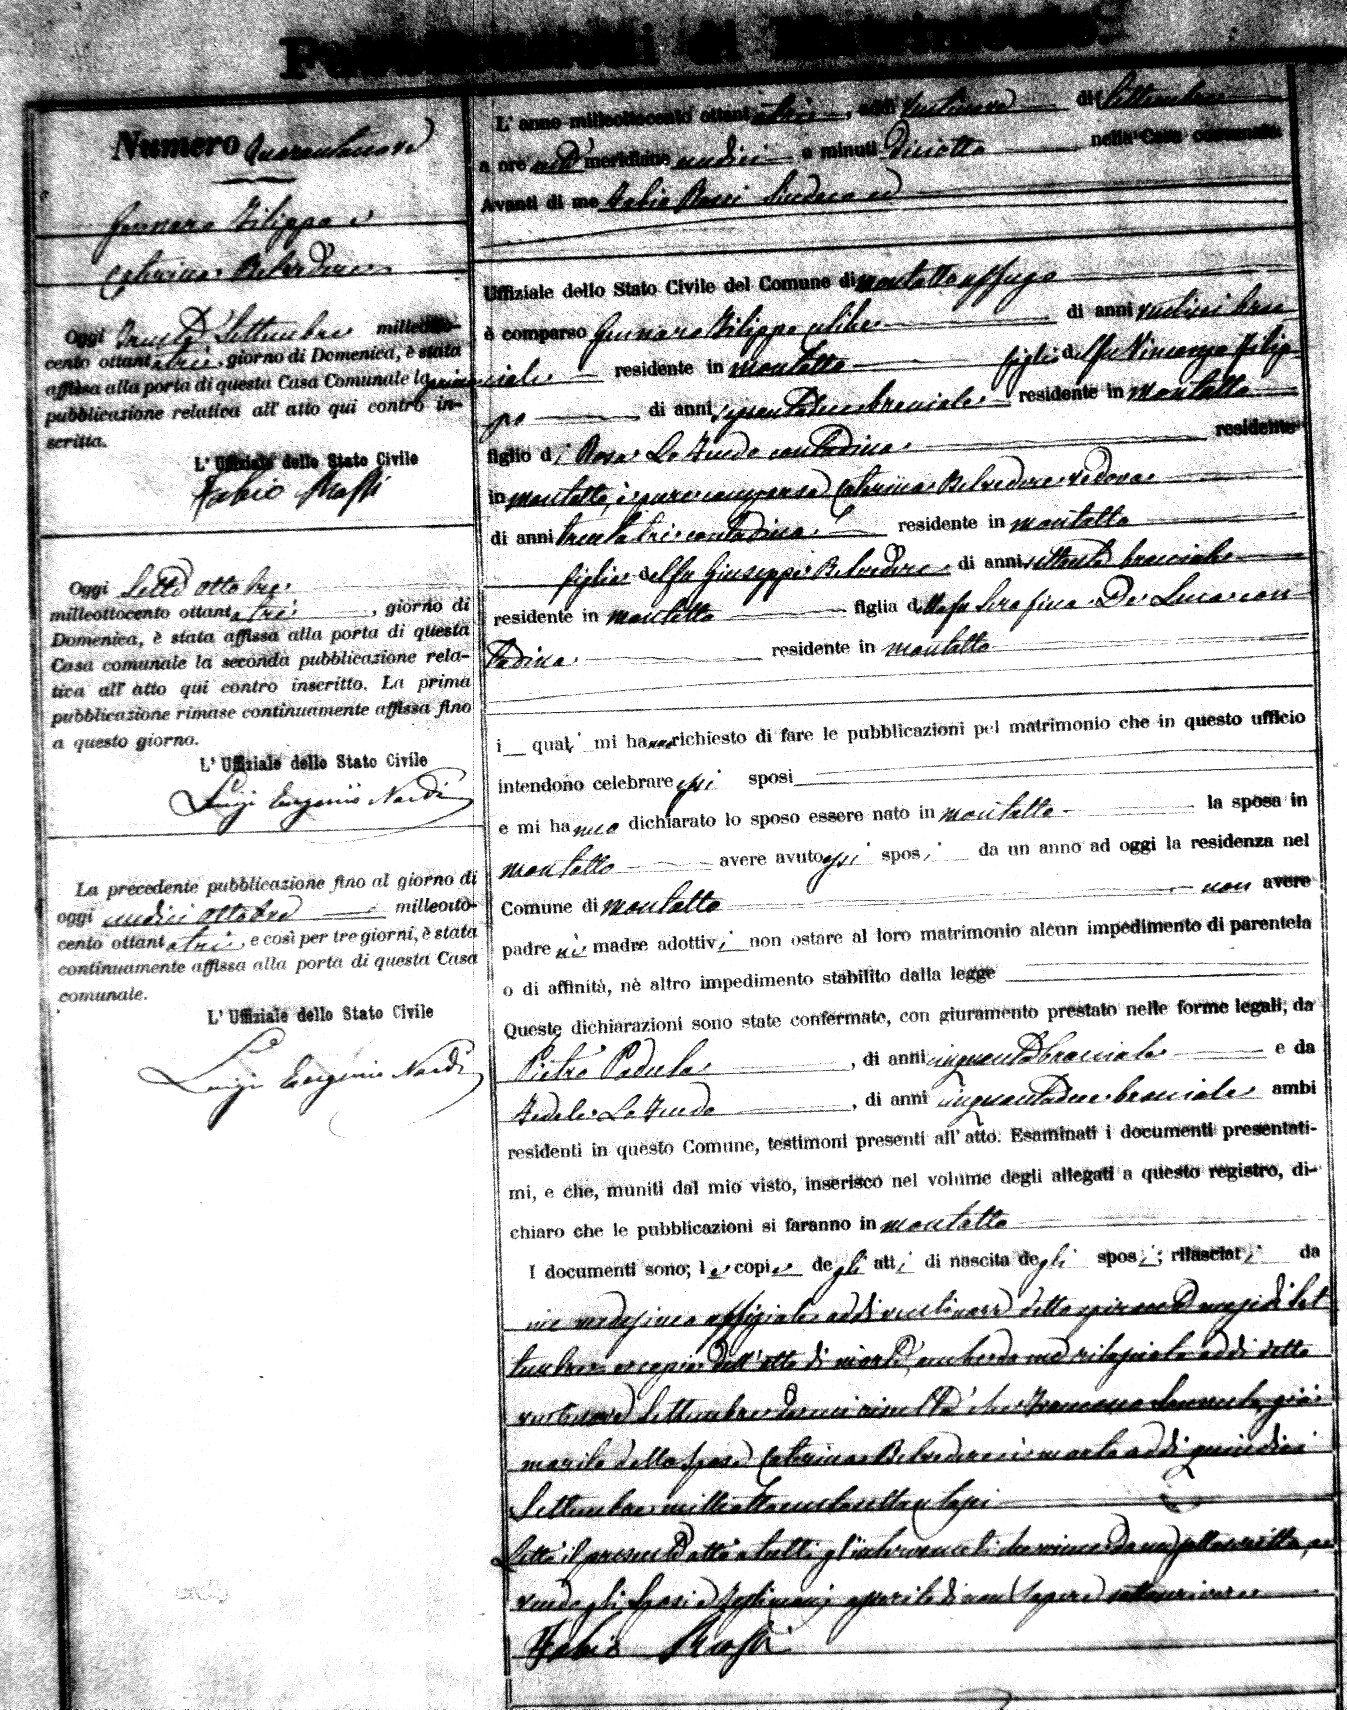 Pubblicazioni di Matrimonio.
Numero Quarantanove
Gennaro Filippo e
Caterina Belvedere
Oggi trenta Settembre milleotto-
cento ottantatre, giorno di Domenica, è stata
affissa alla porta di questa Casa Comunale la prima
pubblicazione relativa all'atto qui contro in-
scritto.
L'Uffiziale dello Stato Civile
Fabio Rossi
Oggi sette ottobre
milleottocento ottantatre, giorno di
Domenica, è stata affissa alla porta di questa
Casa comunale la seconda pubblicazione rela-
tiva all'atto qui contro inscritto. La prima
pubblicazione rimase continuamente affissa fino
a questo giorno.
L'Uffiziale dello Stato Civile
Luigi Eugenio Nardi
La precedente pubblicazione fino al giorno di
oggi undici ottobre milleotto-
cento ottantatre, e così per tre giorni, è stata
continuamente affissa alla porta di questa Casa
comunale.
L'Uffiziale dello Stato Civile
Luigi Eugenio Nardi
L'anno milleottocento ottantatre, addì ventinove di Settembre
a ore anti meridiane undici e minuti diciotto nella Casa comunale
Avanti di me Fabio Rossi Sindaco ed
Uffiziale dello Stato Civile del Comune di Montalto Uffugo
è comparso Gennaro Filippo celibe di anni venticinque brac
ciale residente in Montalto figlio del fu Vincenzo Filip
po di anni bracciale residente in Montalto
figlio di Rosa Lo Feudo contadina residente
in Montalto, è pure comparsa Caterina Belvedere vedova
di anni trentatre contadina residente in Montalto
figlia del fu Giuseppe Belvedere di anni settanta bracciale
residente in Montalto figlia della fu Serafina De Luca con
tadina residente in Montalto
i quali mi hanno richiesto di fare le pubblicazioni pel matrimonio che in questo ufficio
intendono celebrare essi sposi
e mi hanno dichiarato lo sposo essere nato in Montalto la sposa in
Montalto avere avuto essi sposi da un anno ad oggi la residenza nel
Comune di Montalto non avere
padre nè madre adottivi non ostare al loro matrimonio alcun impedimento di parentela
o di affinità, nè altro impedimento stabilito dalla legge
Queste dichiarazioni sono state confermate, con giuramento prestato nelle forme legali, da
Pietro Padula, di anni cinquanta bracciale e da
Fedele Lo Feudo, di anni cinquantadue bracciale ambi
residenti in questo Comune, testimoni presenti all'atto. Esaminati i documenti presentati-
mi, e che, muniti dal mio visto, inserisco nel volume degli allegati a questo registro, di-
chiaro che le pubblicazioni si faranno in Montalto
I documenti sono; le copie degli atti di nascita degli sposi; rilasciati da
me medesimo uffiziale addì ventinove detto spirante mese di Set
tembre e copia dell'atto di morte, anche da me rilasciata addì detto
ventinove Settembre da cui risulta che Francesco già
marito della sposa Caterina Belvedere è morto addì quindici
Settembre milleottocentosettantasei
Letto il presente atto a tutti gl'intervenuti da me sottoscritto, a
vendo gli sposi e testimoni asserito di non sapere sottoscrivere
Fabio Rossi